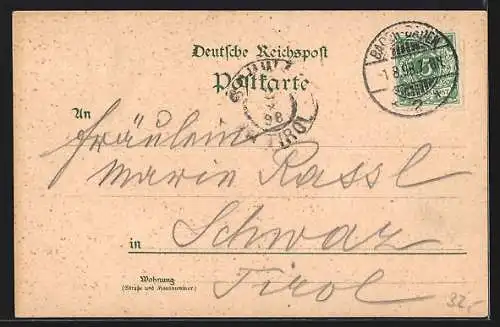 Deutsche Reichspost
Postkarte
BADEN-BADEN
1.8.98
2
SCHWAZ
98
TIROL
An
Fräulein
Marie Rassl
in Schwaz
Tirol
Wohnung
(Straße und Hausnummer)
32,-